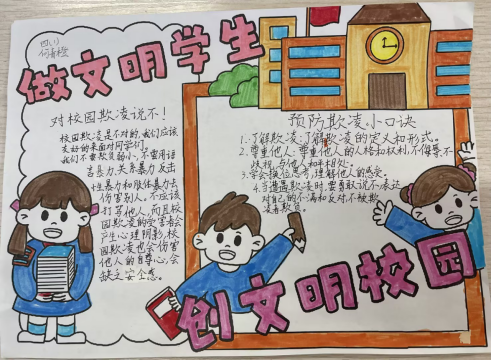 四(1)
做文明学生
对校园欺凌说不!
校园欺凌是不对的,我们应该
友好的来面对同学们。
我们不要欺负弱小,不要用语
言暴力、关系暴力、反击
性暴力和肢体暴力去
伤害别人,不应该
打骂他人,而且校
园欺凌的受害者会
产生心理阴影,校
园欺凌也会伤害
他人的自尊心,会
缺乏安全感。
预防欺凌小口诀
1.了解欺凌:了解欺凌的定义和形式。
2.尊重他人:尊重他人的人格和权利,不侮辱、不
歧视,与他人和平相处。
3.学会换位思考,理解他人的感受。
4.当遭遇欺凌时,要勇敢说不,表达
对自己的不满和反对,不被欺
凌者欺负。
创文明校园